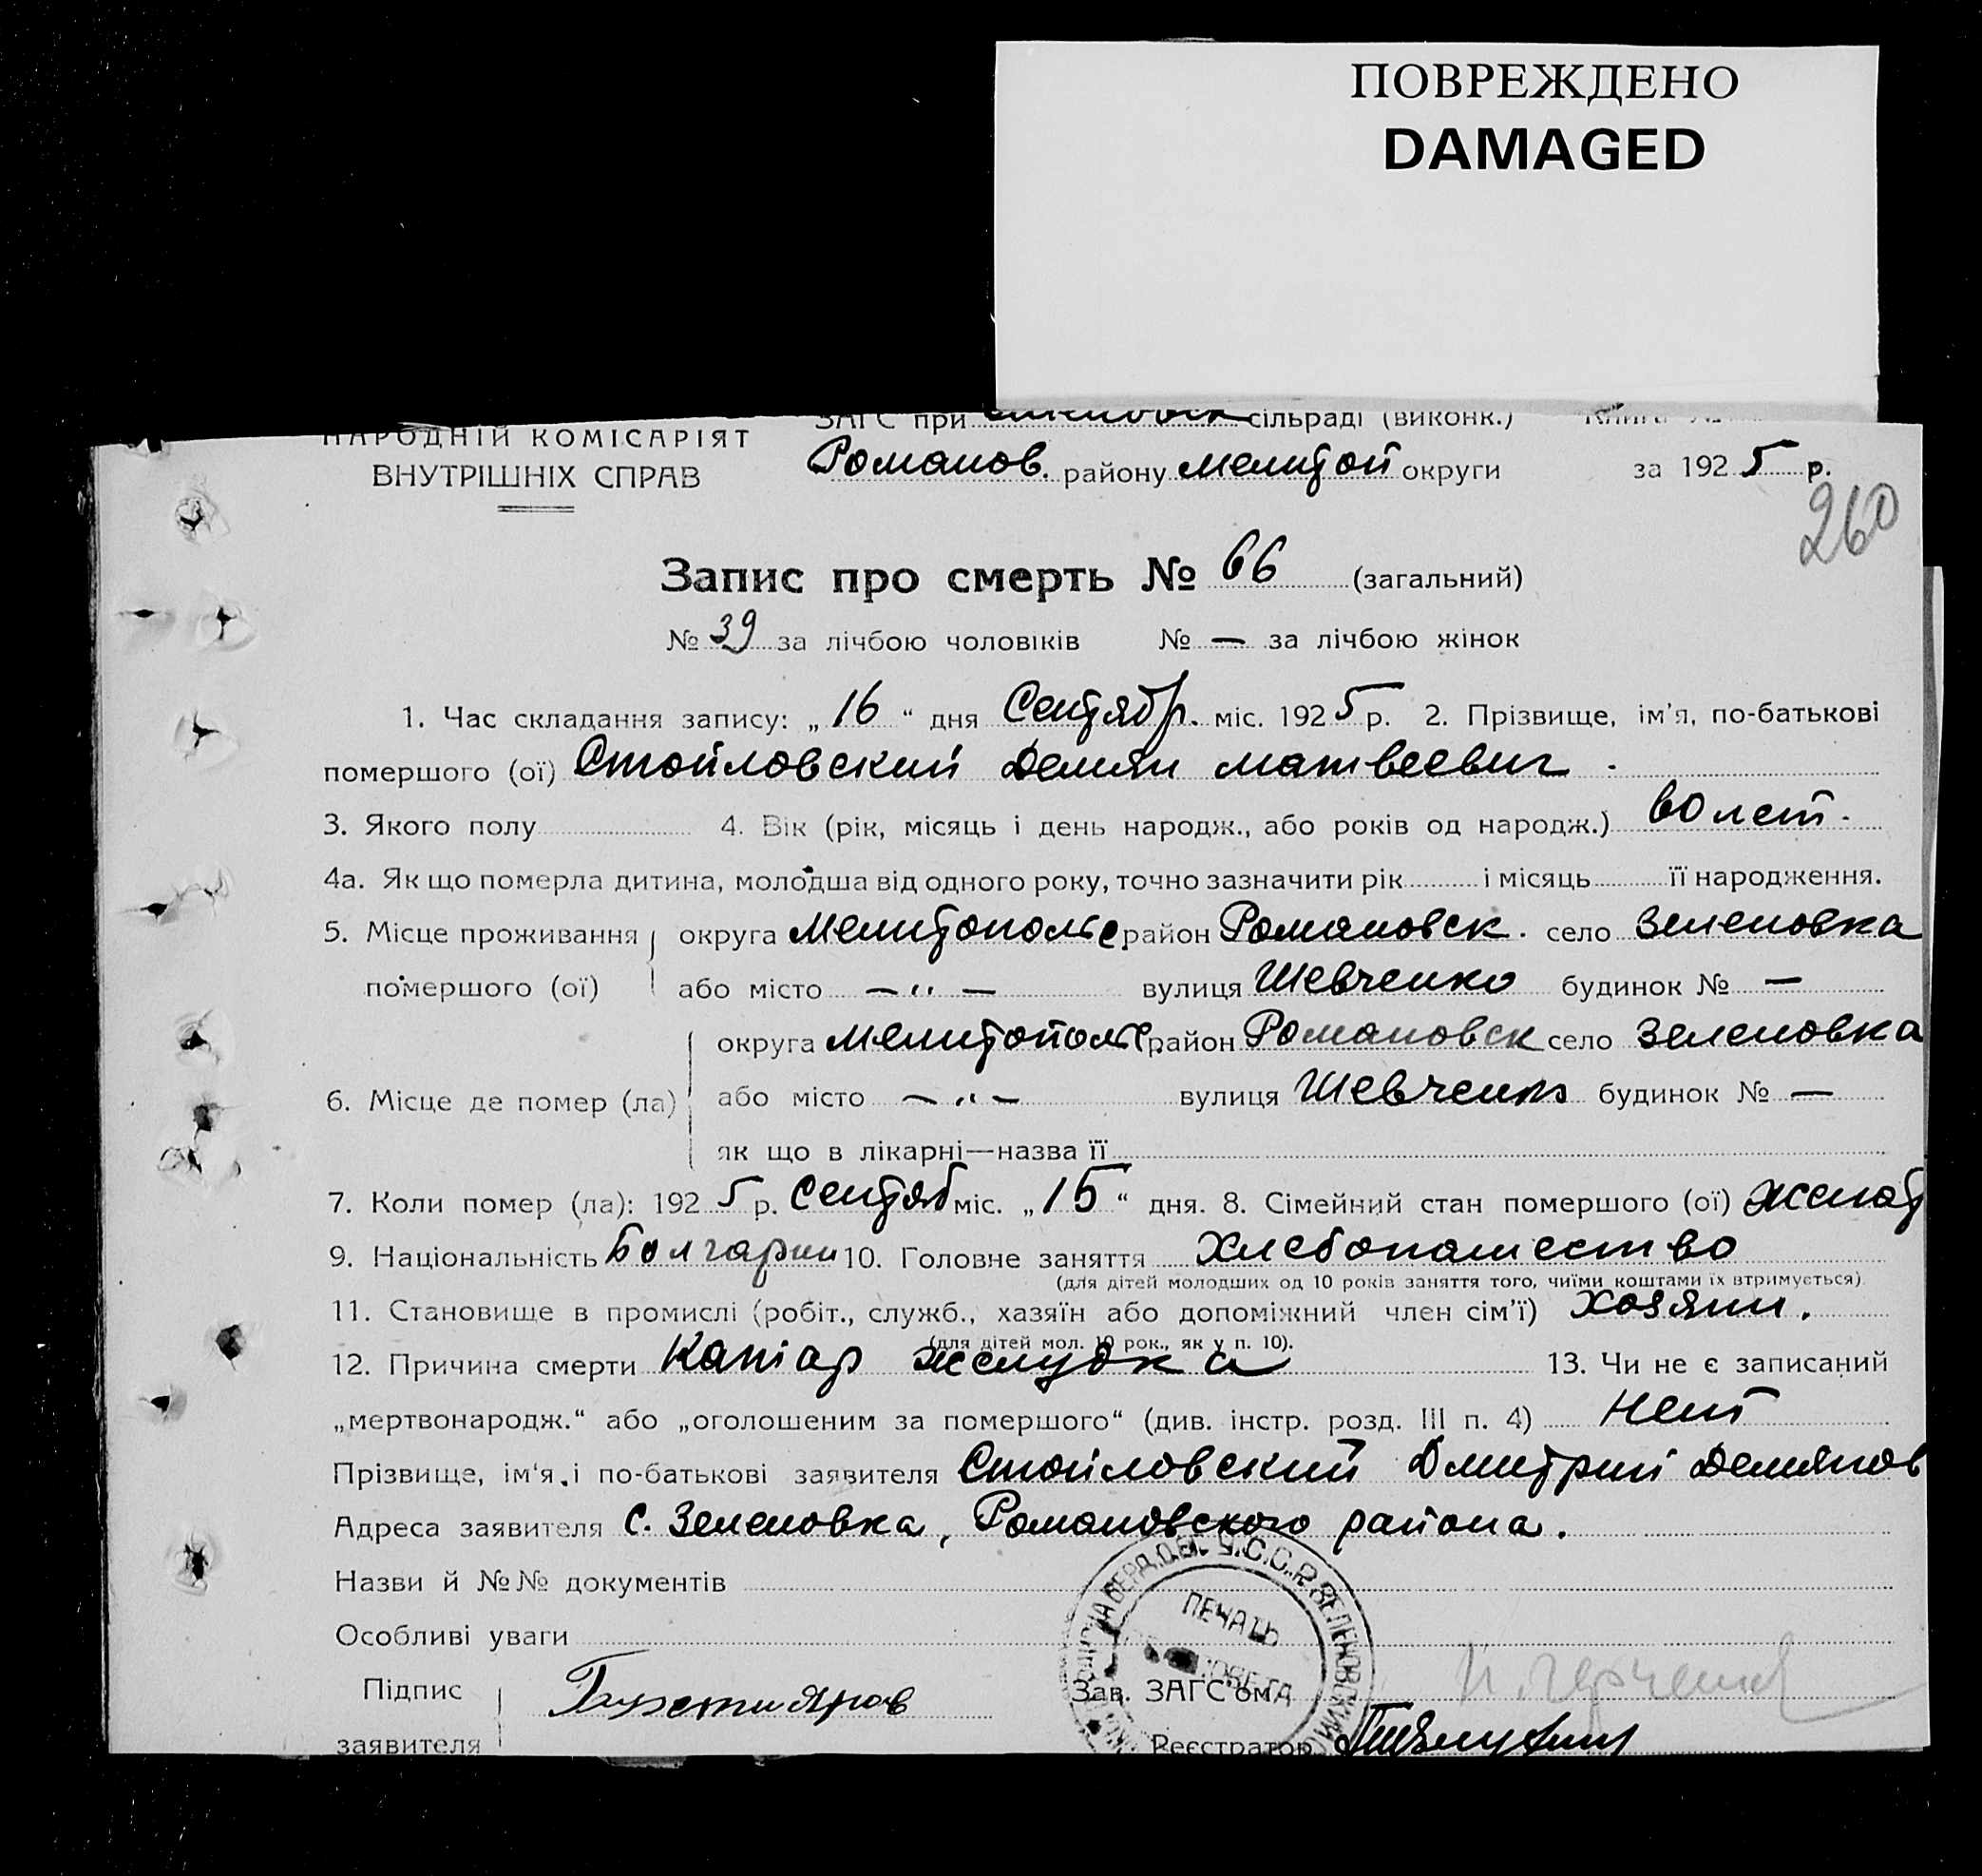 ПОВРЕЖДЕНО
DAMAGED
ЗАГС при сільраді (виконк.)
НАРОДНІЙ КОМІСАРІЯТ
ВНУТРІШНІХ СПРАВ
Романов. району Мелитоп округи за 1925 р.
260
Запис про смерть № 66 (загальний)
№ 39 за лічбою чоловіків № — за лічбою жінок
1. Час складання запису: „16“ дня Сентябр. міс. 1925 р. 2. Прізвище, ім'я, по-батькові
помершого (ої) Стойловский Демян Матвеевич.
3. Якого полу 4. Вік (рік, місяць і день народж., або років од народж.) 60 лет.
4а. Як що померла дитина, молодша від одного року, точно зазначити рік і місяць її народження.
5. Місце проживання округа Мелитопольс район Романовск. село Зеленовка
помершого (ої) або місто — „ — вулиця Шевченко будинок № —
округа Мелитопольс район Романовск село Зеленовка
6. Місце де помер (ла) або місто — „ — вулиця Шевченко будинок № —
як що в лікарні—назва її
7. Коли помер (ла): 1925 р. Сентяб міс. „15“ дня. 8. Сімейний стан помершого (ої) женат
9. Національність Болгарин 10. Головне заняття Хлебопашество
(для дітей молодших од 10 років заняття того, чиїми коштами їх втримується)
11. Становище в промислі (робіт., служб., хазяїн або допоміжний член сім'ї) хозяин.
(для дітей мол. 10 рок., як у п. 10).
12. Причина смерти Катар желудка 13. Чи не є записаний
„мертвонародж.“ або „оголошеним за помершого“ (див. інстр. розд. III п. 4) Нет
Прізвище, ім'я і по-батькові заявителя Стойловский Дмитрий Демянов
Адреса заявителя с. Зеленовка, Романовского района.
Назви й №№ документів
Особливі уваги
У.С.С.Р. ЗЕЛЕНОВСКИЙ
ПЕЧАТЬ
Підпис
заявителя
Зав. ЗАГС'ом
Реєстратор